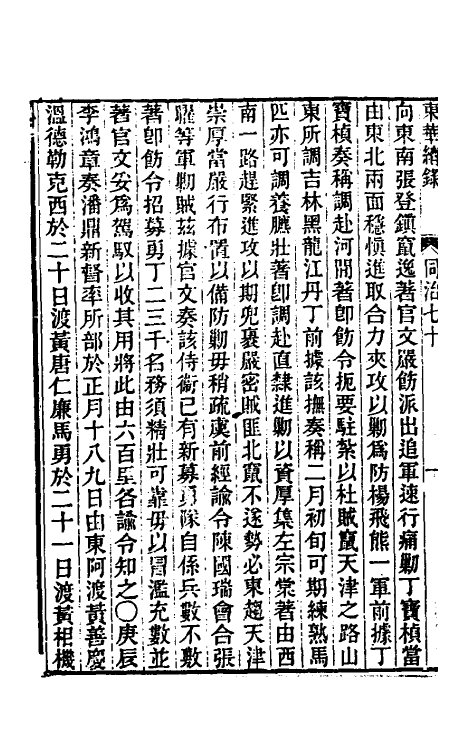 東華續錄 同治七十 一
向東南張登鎮竄逸著官文嚴飭派出追軍速行痛勦丁寶楨當
由東北兩面穩愼進取合力夾攻以勦爲防楊飛熊一軍前據丁
寶楨奏稱調赴河間著卽飭令扼要駐紮以杜賊竄天津之路山
東所調吉林黑龍江丹丁前據該撫奏稱二月初旬可期練熟馬
匹亦可調養臕壯著卽調赴直隸進勦以資厚集左宗棠著由西
南一路趕緊進攻以期兜裹嚴密賊匪北竄不遂勢必東趨天津
崇厚當嚴行布置以備防勦毋稍疏虞前經諭令陳國瑞會合張
曜等軍勦賊茲據官文奏該侍衞已有新募勇隊自係兵數不敷
著卽飭令招募勇丁二三千名務須精壯可靠毋以冒濫充數並
著官文妥爲駕馭以收其用將此由六百里各諭令知之〇庚辰
李鴻章奏潘鼎新督率所部於正月十八九日由東阿渡黃善慶
溫德勒克西於二十日渡黃唐仁廉馬勇於二十一日渡黃相機